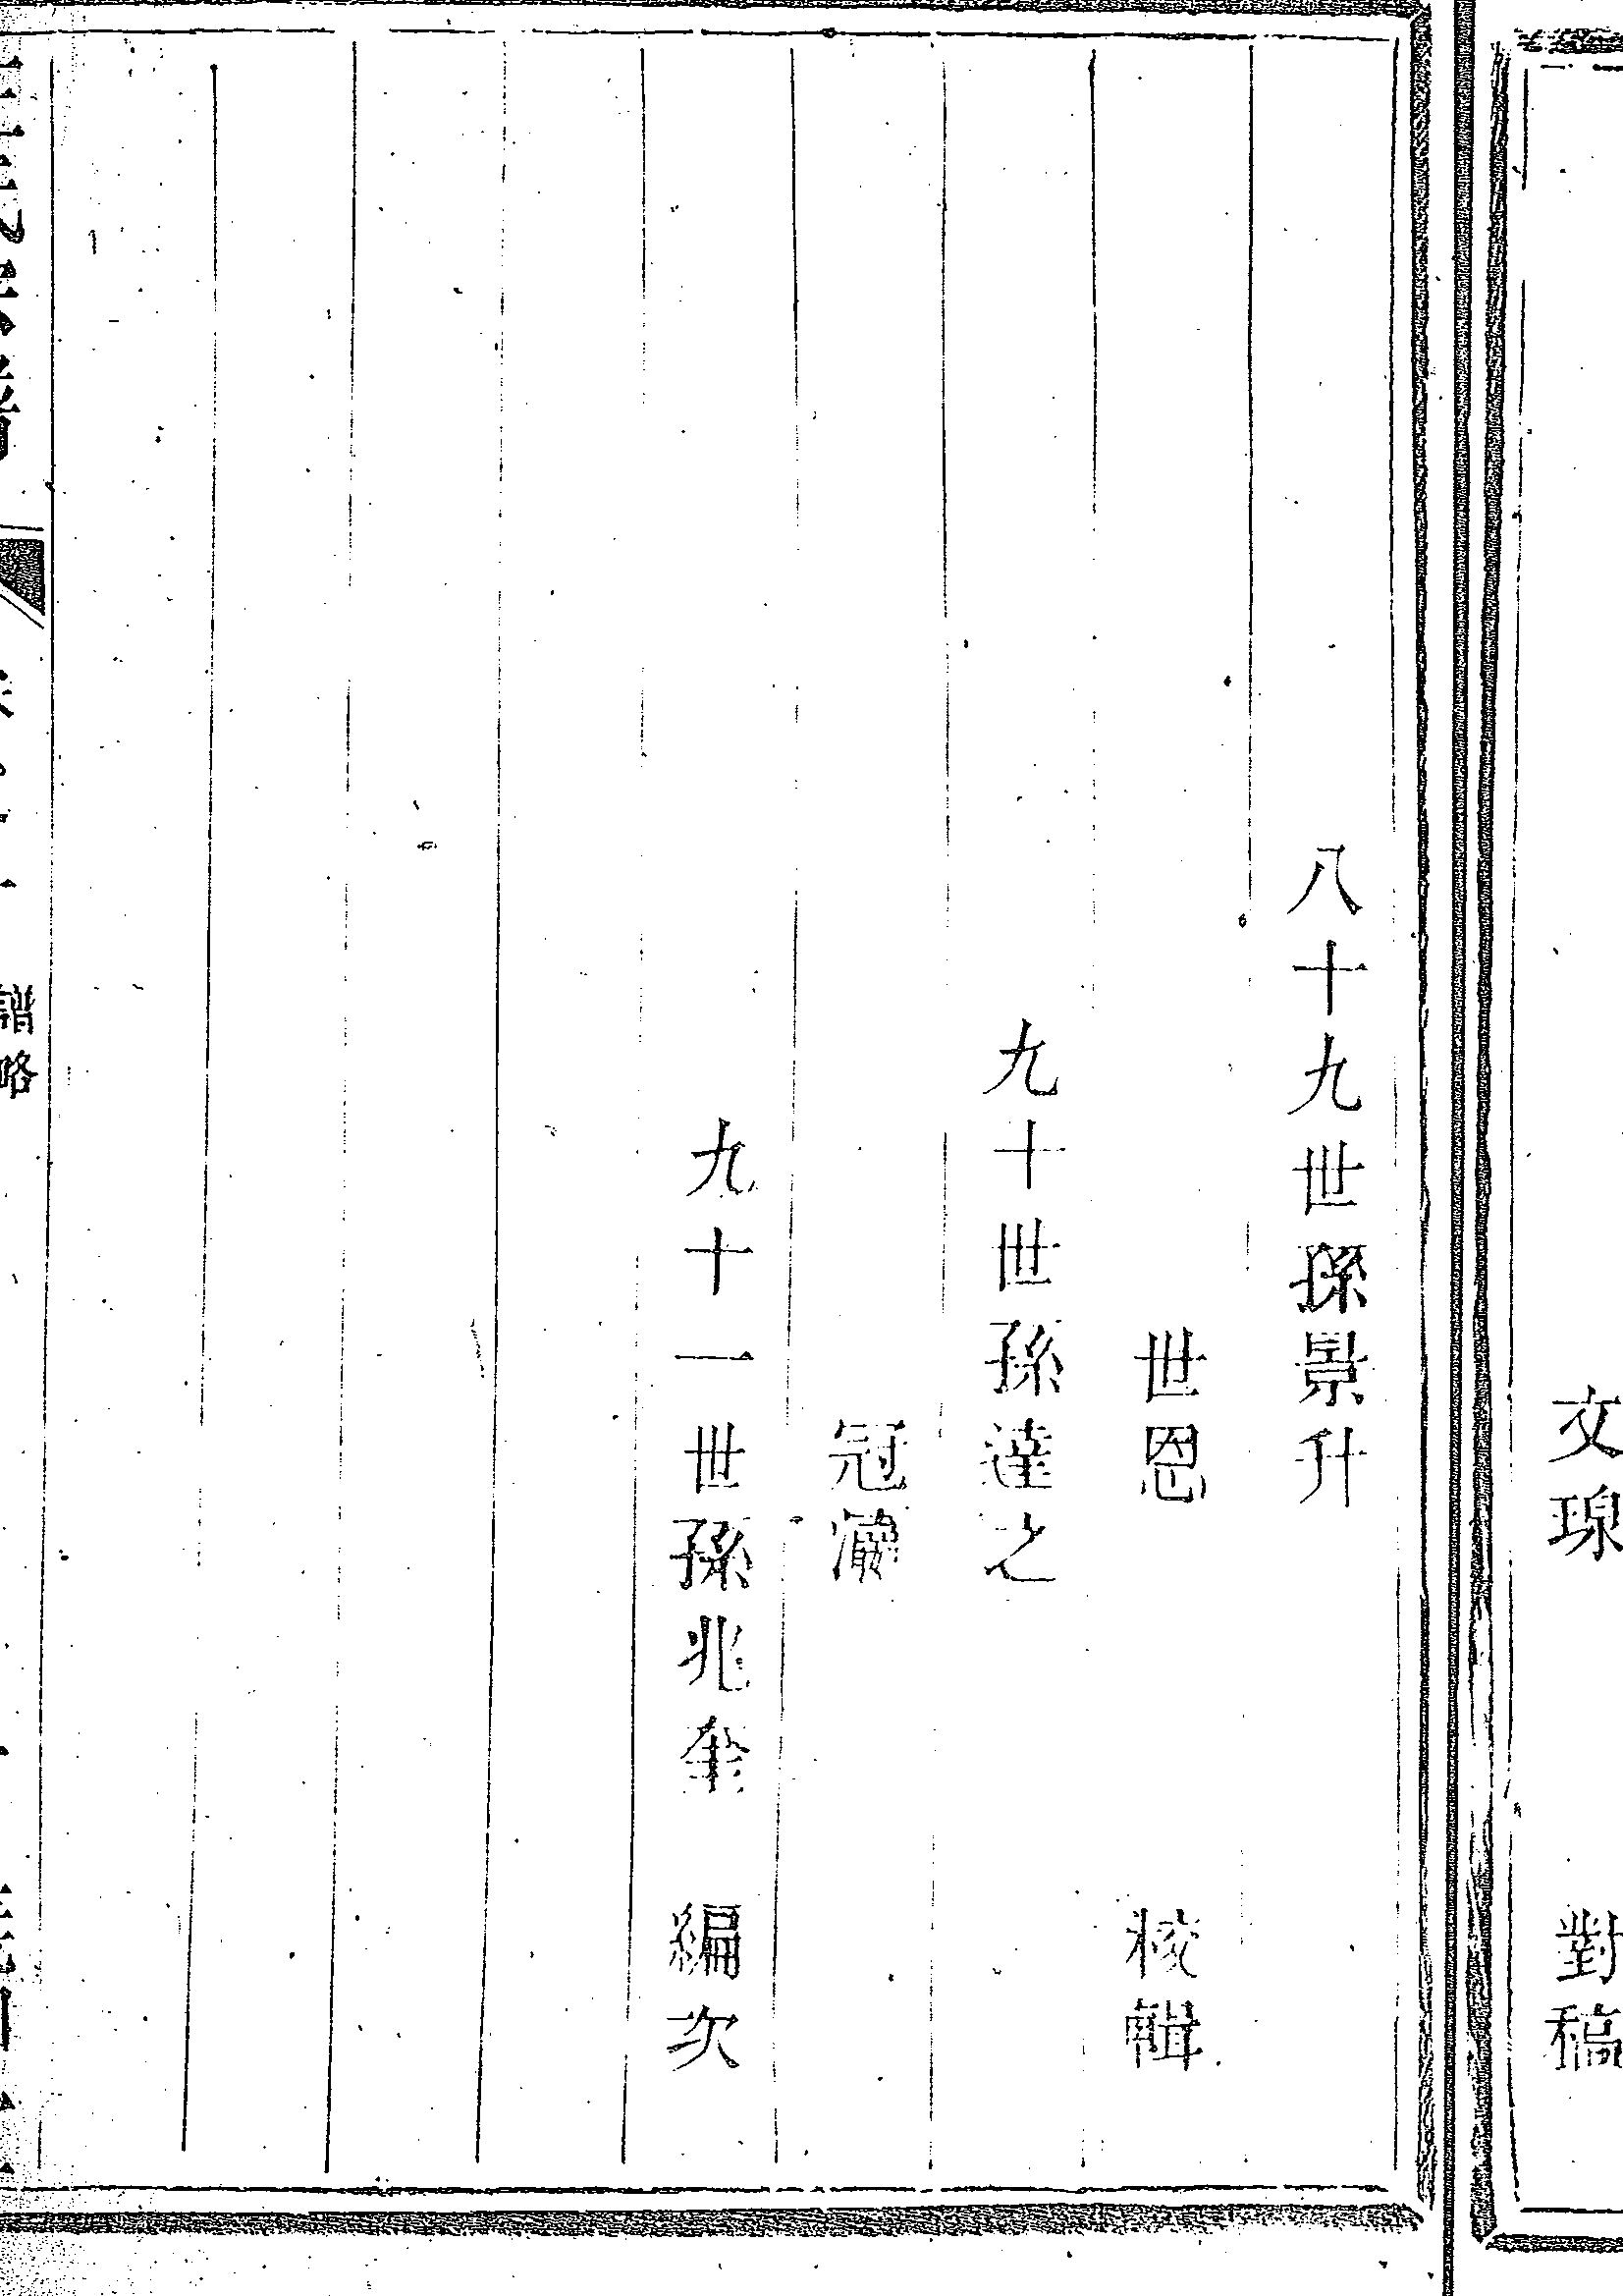 文琅
對稿
八十九世孫景升
世恩
校輯
九十世孫達之
冠瀛
九十一世孫兆奎
編次
譜略